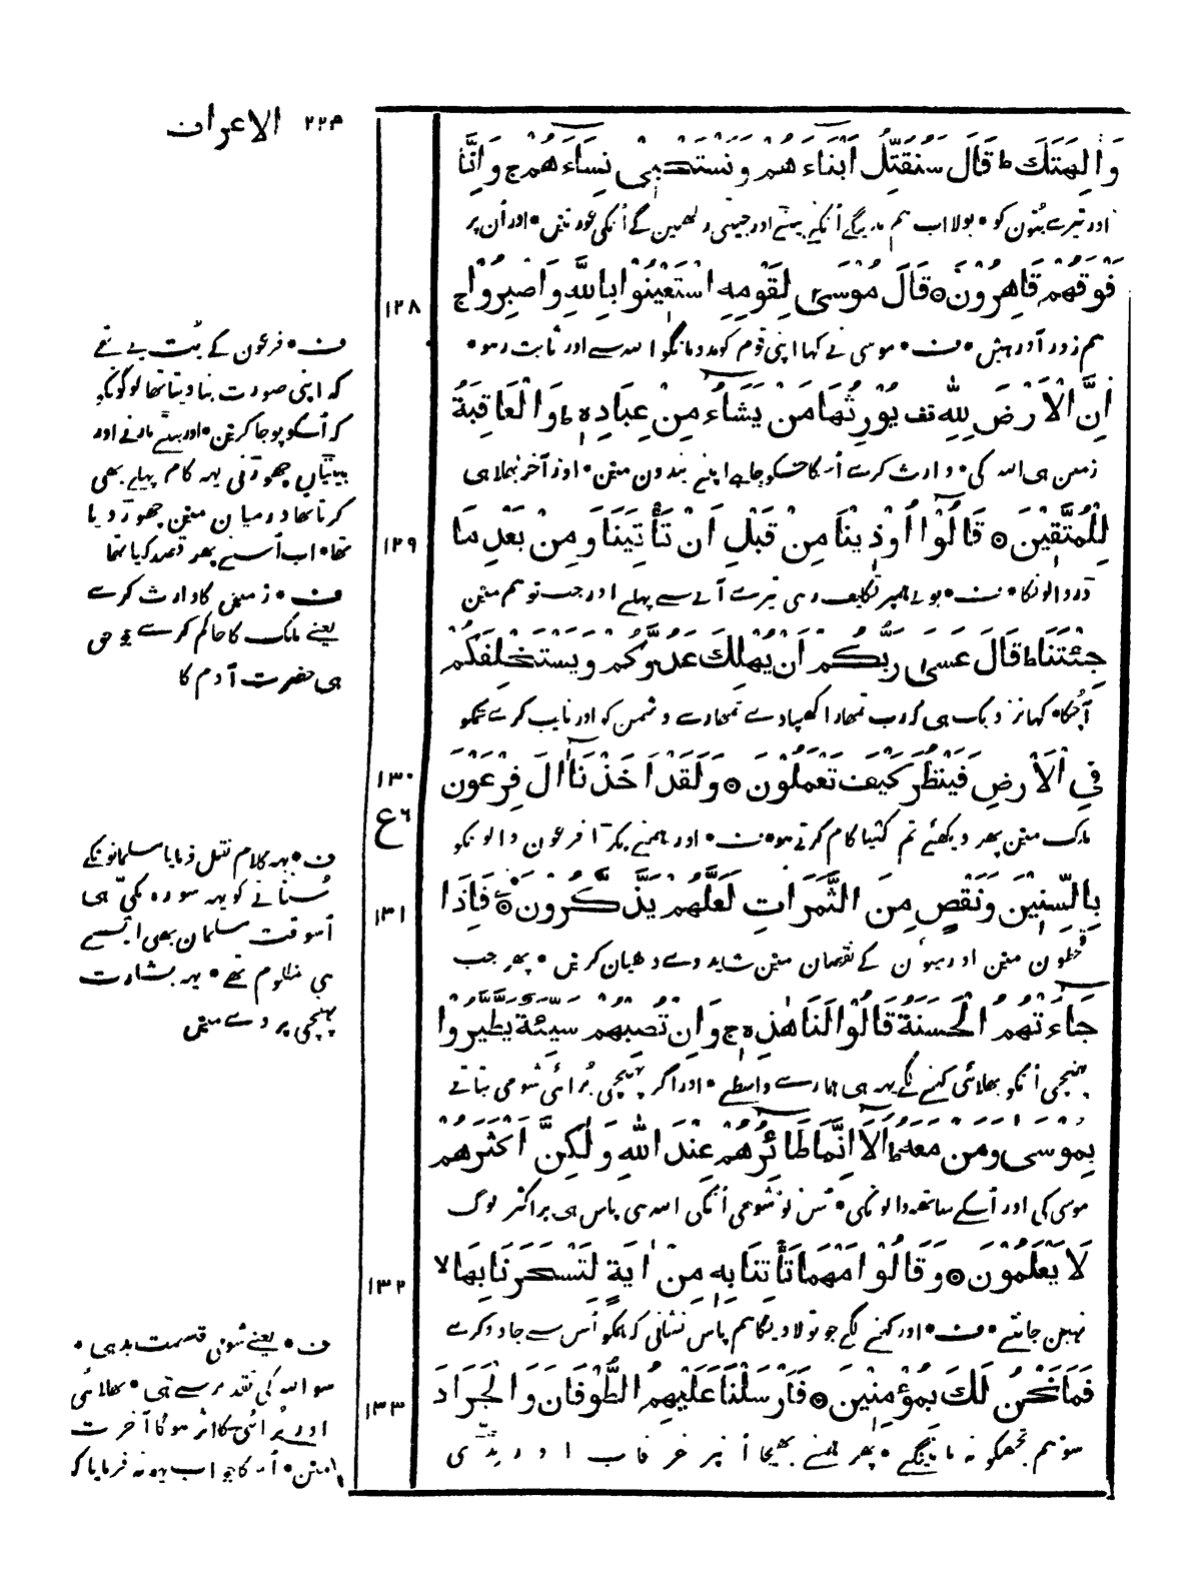 ۲۲۳ الاعراف
وَاٰلِهَتَكَ ط قَالَ سَنُقَتِّلُ اَبْنَاءَ هُمْ وَنَسْتَحْيٖ نِسَاءَ هُمْ ج وَاِنَّا
اور تیرے بُتون کو • بولا اب ہم مارینگے اُنکے بیٹے اور جیتی رکھین گے اُنکی عورتین • اور اُن پر
فَوْقَهُمْ قَاهِرُوْنَ ۝ قَالَ مُوْسٰى لِقَوْمِهِ اسْتَعِيْنُوْا بِاللّٰهِ وَاصْبِرُوْا ج
۱۲۸
ہم زور آور ہین • ف • موسی نے کہا اپنی قوم کو مدد مانگو اللہ سے اور ثابت رہو •
اِنَّ الْاَرْضَ لِلّٰهِ قف يُوْرِثُهَا مَنْ يَّشَاءُ مِنْ عِبَادِهٖ ط وَالْعَاقِبَةُ
زمین ہی اللہ کی • وارث کرے اُسکا جسکو چاہے اپنے بندون مین • اور آخر بھلا ہی
لِلْمُتَّقِيْنَ ۝ قَالُوْا اُوْذِيْنَا مِنْ قَبْلِ اَنْ تَأْتِيَنَا وَمِنْ بَعْدِ مَا
۱۲۹
ڈر والونکا • ف • بولے ہمپر تکلیف رہی تیرے آنے سے پہلے اور جب تو ہم مین
جِئْتَنَا ط قَالَ عَسٰى رَبُّكُمْ اَنْ يُّهْلِكَ عَدُوَّكُمْ وَيَسْتَخْلِفَكُمْ
آچکا • کہا نزدیک ہی کہ رب تمھارا کھپادے تمھارے دشمن کو اور نایب کرے تمکو
فِي الْاَرْضِ فَيَنْظُرَ كَيْفَ تَعْمَلُوْنَ ۝ وَلَقَدْ اَخَذْنَا اٰلَ فِرْعَوْنَ
۱۳۰
ع ۶
ملک مین پھر دیکھے تم کیسا کام کرتے ہو • ف • اور ہمنے پکڑا فرعون والونکو
بِالسِّنِيْنَ وَنَقْصٍ مِنَ الثَّمَرَاتِ لَعَلَّهُمْ يَذَّكَّرُوْنَ ۝ فَاِذَا
۱۳۱
قحطون مین اور میوُن کے نقصان مین شاید وے دھیان کرین • پھر جب
جَاءَتْهُمُ الْحَسَنَةُ قَالُوْا لَنَا هٰذِهٖ ج وَاِنْ تُصِبْهُمْ سَيِّئَةٌ يَّطَّيَّرُوْا
پہنچی اُنکو بھلائی کہنے لگے یہہ ہی ہمارے واسطے • اور اگر پہنچی بُرائی شومی بتاتے
بِمُوْسٰى وَمَنْ مَّعَهٗ ط اَلَا اِنَّمَا طَائِرُهُمْ عِنْدَ اللّٰهِ وَلٰكِنَّ اَكْثَرَهُمْ
موسی کی اور اُسکے ساتھہ والونکی • سُن لو شومی اُنکی اللہ ہی پاس ہی پر اکثر لوگ
لَا يَعْلَمُوْنَ ۝ وَقَالُوْا مَهْمَا تَأْتِنَا بِهٖ مِنْ اٰيَةٍ لِّتَسْحَرَنَا بِهَا لا
۱۳۲
نہین جانتے • ف • اور کہنے لگے جو تو لاویگا ہم پاس نشانی کہ ہمکو اُس سے جادو کرے
فَمَا نَحْنُ لَكَ بِمُؤْمِنِيْنَ ۝ فَاَرْسَلْنَا عَلَيْهِمُ الطُّوْفَانَ وَالْجَرَادَ
۱۳۳
سو ہم تجھکو نہ مانینگے • پھر ہمنے بھیجا اُنپر غرقاب اور ٹڈی
ف • فرعون کے بُت یے تھے
کہ اپنی صورت بنا دیتا تھا لوگونکو
کہ اُسکو پوجا کرین • اور بیٹے مارنے اور
بیٹیاں چھوڑنی یہہ کام پہلے بھی
کرتا تھا درمیان مین چھوڑ دیا
تھا • اب اُسنے پھر قصد کیا تھا
ف • زمین کا وارث کرے
یعنے ملک کا حاکم کرے جو حق
ہی حضرت آدم کا
ف • یہہ کلام نقل فرمایا مسلمانونکے
سُنانے کو یہہ سورہ مکّی ہی
اُسوقت مسلمان بھی ایسے
ہی مظلوم تھے • یہہ بشارت
پہنچی پردے مین
ف • یعنے شومی قسمت بد ہی •
سو اللہ کی تقدیر سے ہی • بھلائی
اور بُرائی کا اثر ہوگا آخرت
مین • اُسکا جواب یہہ نہ فرمایا کہ